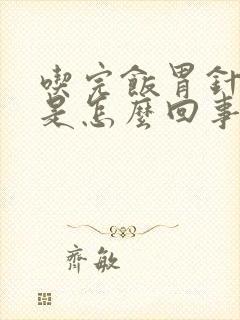 喫完飯胃針
是怎麼回事
齊敏